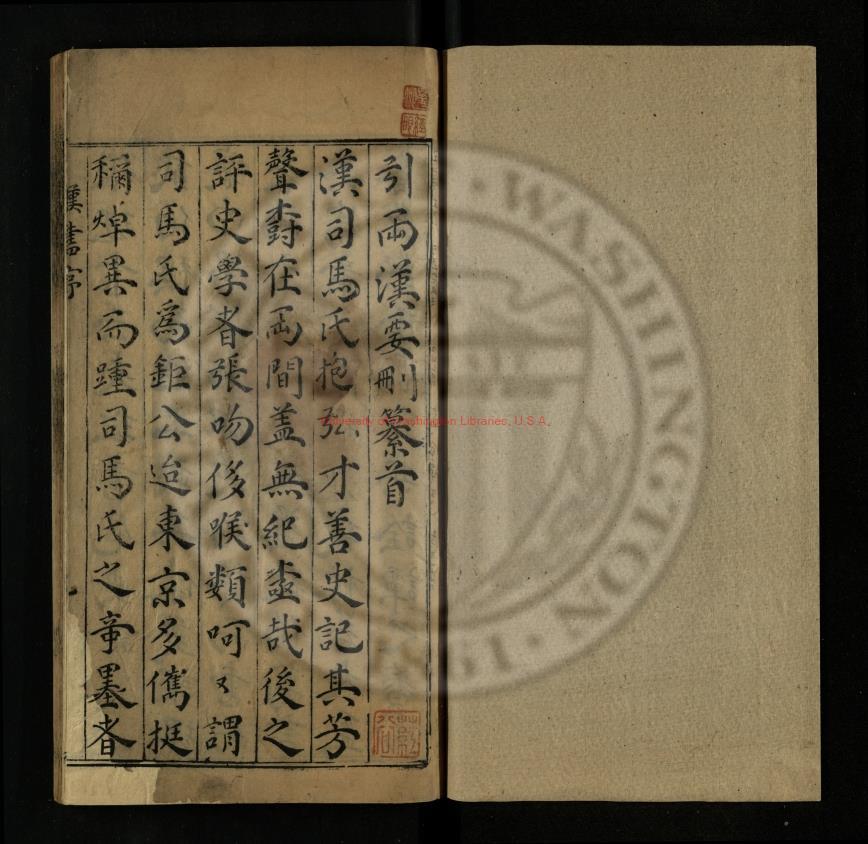 引兩漢要刪纂首
漢司馬氏抱弘才善史記其芳
聲壽在兩間蓋無紀盡哉後之
評史學者張吻侈喉類呵〻謂
司馬氏為鉅公迨東京多儁挺
稱焯異而踵司馬氏之帝墨者
漢書序
University of Washington Libraries, U.S.A.
WASHINGTON